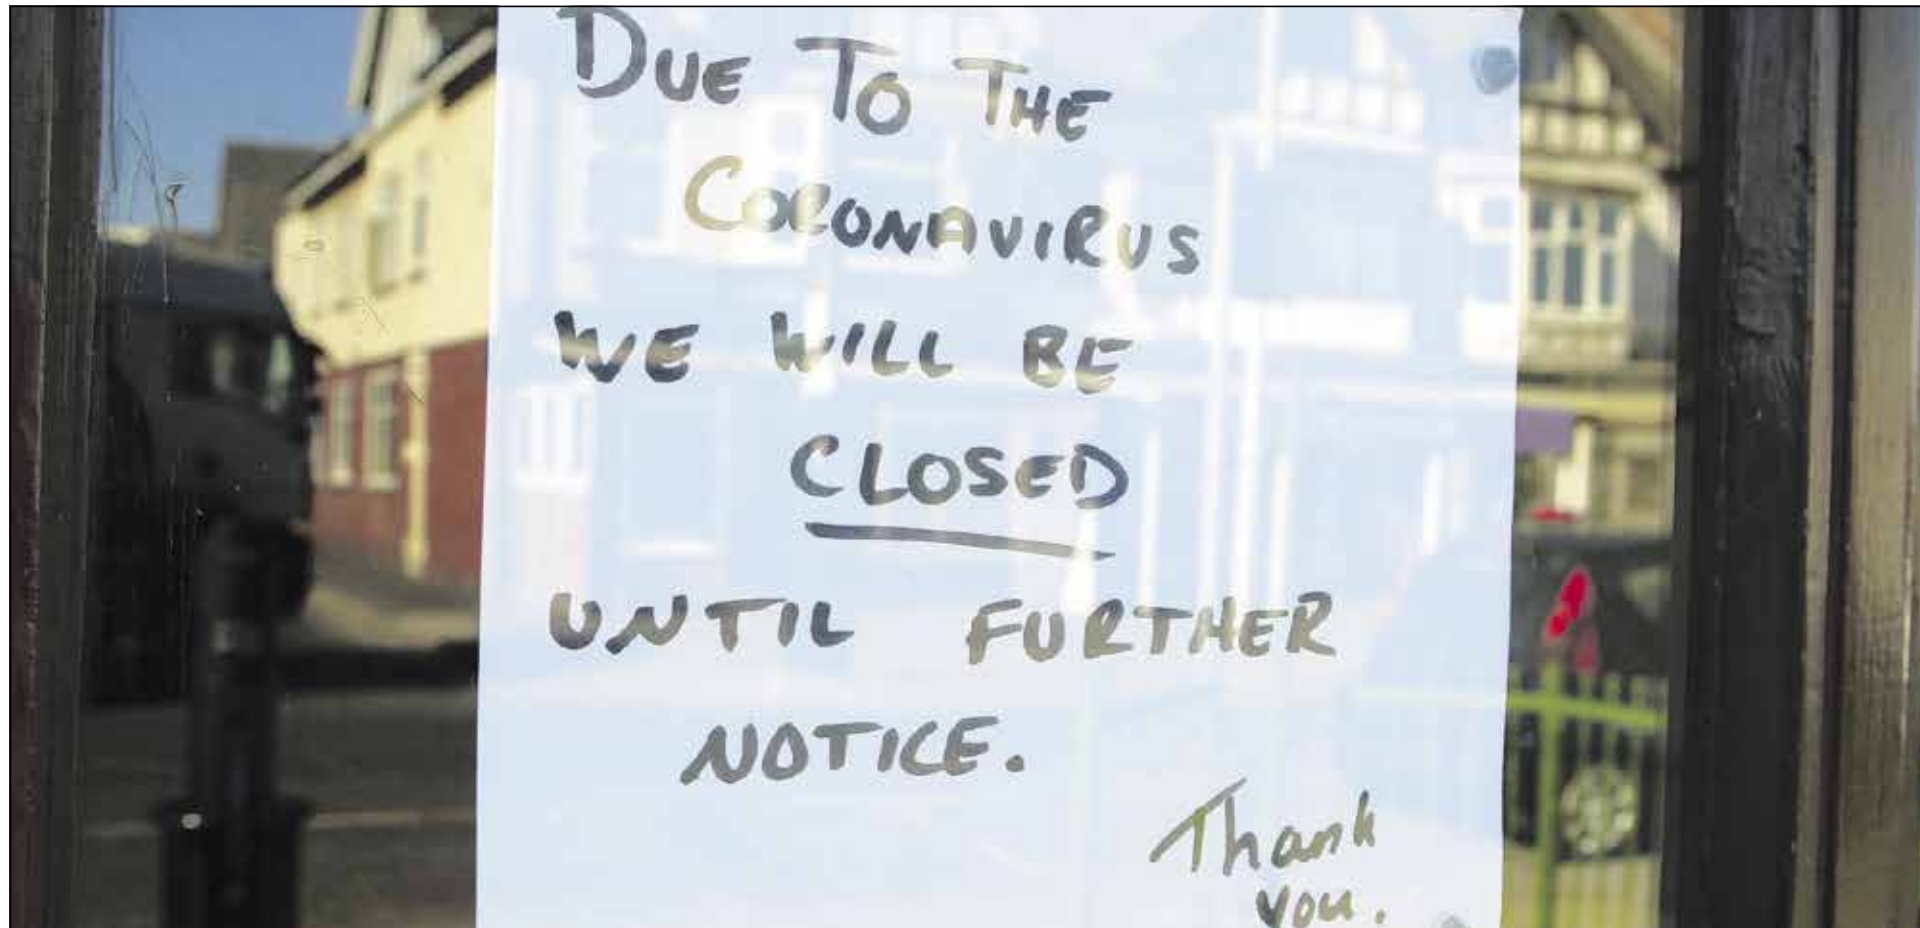 DUE TO THE
CORONAVIRUS
WE WILL BE
CLOSED
UNTIL FURTHER
NOTICE.
Thank
you.